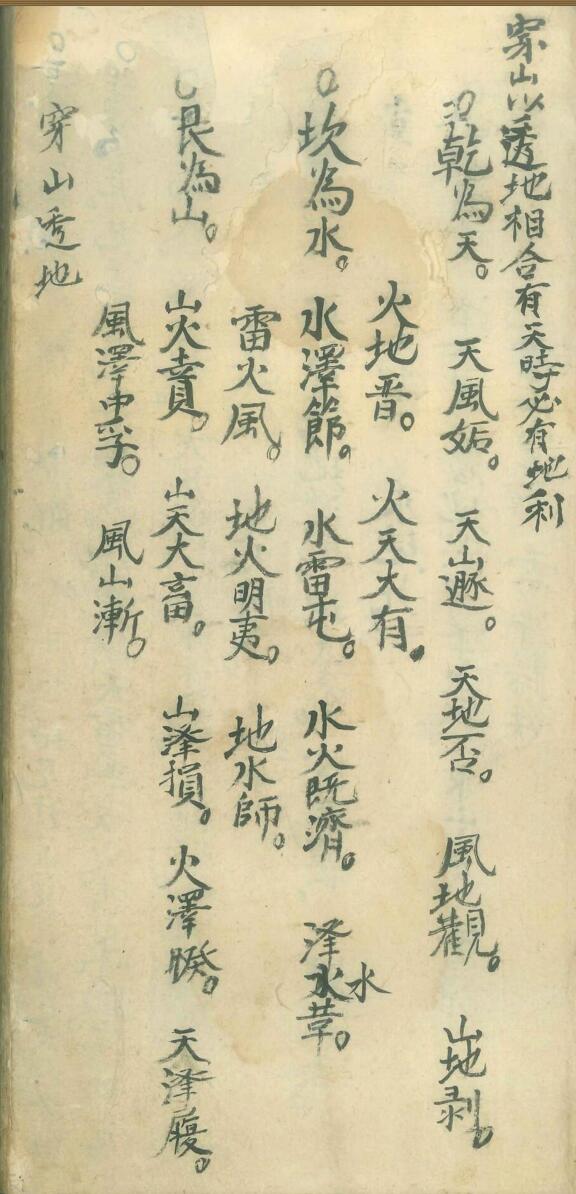 穿山以透地相合有天時必有地利
〇乾為天。天風姤。天山遯。天地否。風地觀。山地剥。
火地晋。火天大有。
〇坎為水。水澤節。水雷屯。水火既濟。泽水革。
水
雷火風。地火明夷。地水師。
〇艮為山。山火賁。山天大畜。山泽損。火澤睽。天泽履。
風澤中孚。風山漸。
穿山透地